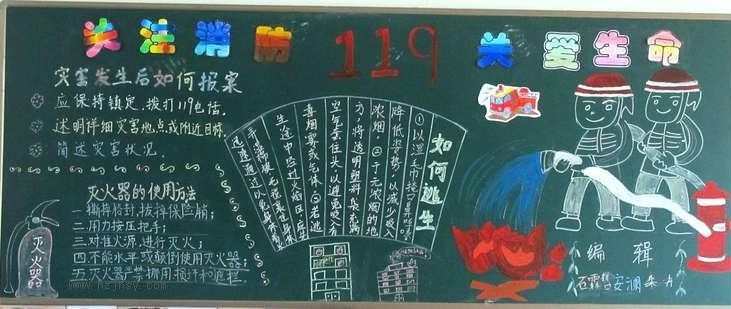 关注消防 119 关爱生命
灾害发生后如何报案
应保持镇定、拨打119电话。
述明详细灾害地点或附近目标。
简述灾害状况。
灭火器的使用方法
一.撕掉铅封,拔掉保险销;
二.用力按压把手;
三.对准火源,进行灭火;
四.不能水平或颠倒使用灭火器;
五.灭火器严禁挪用
灭火器
如何逃生
①以湿毛巾掩口鼻
降低姿势,以减少吸
浓烟。②于无浓烟的地
方,将透明塑料袋充满
空气套住头,以避免吸入
毒烟雾或气体。③若逃
生途中经过火焰区,应先
编辑